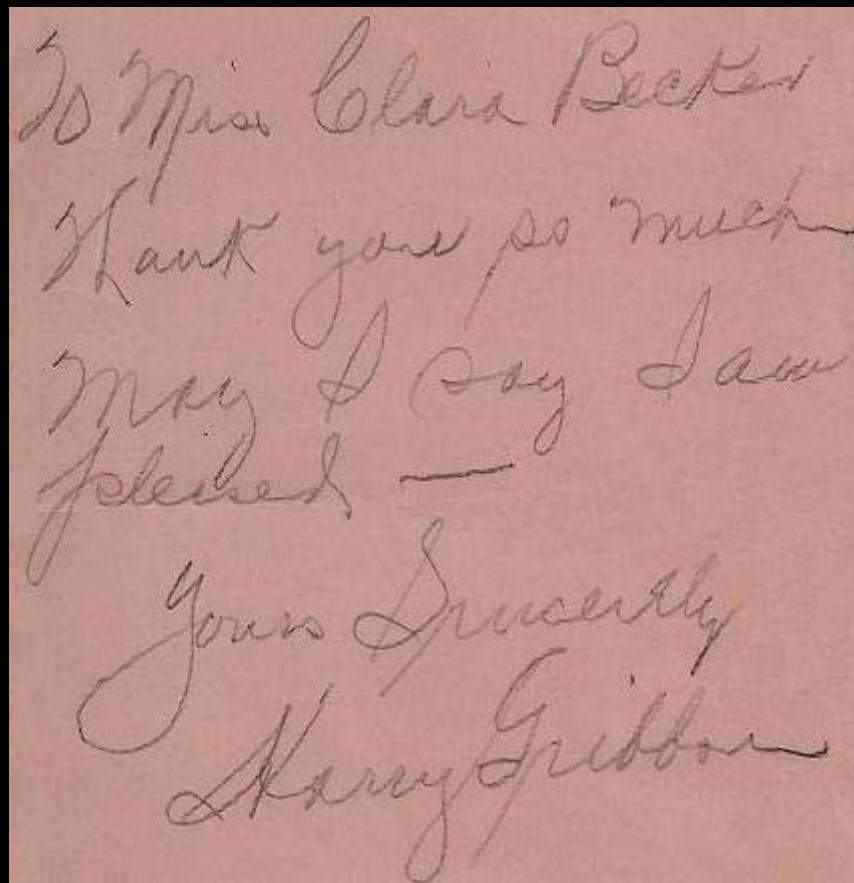 To Miss Clara Becker
Thank you so much
May I say I am
pleased —
Yours Sincerely
Harry Gribbon